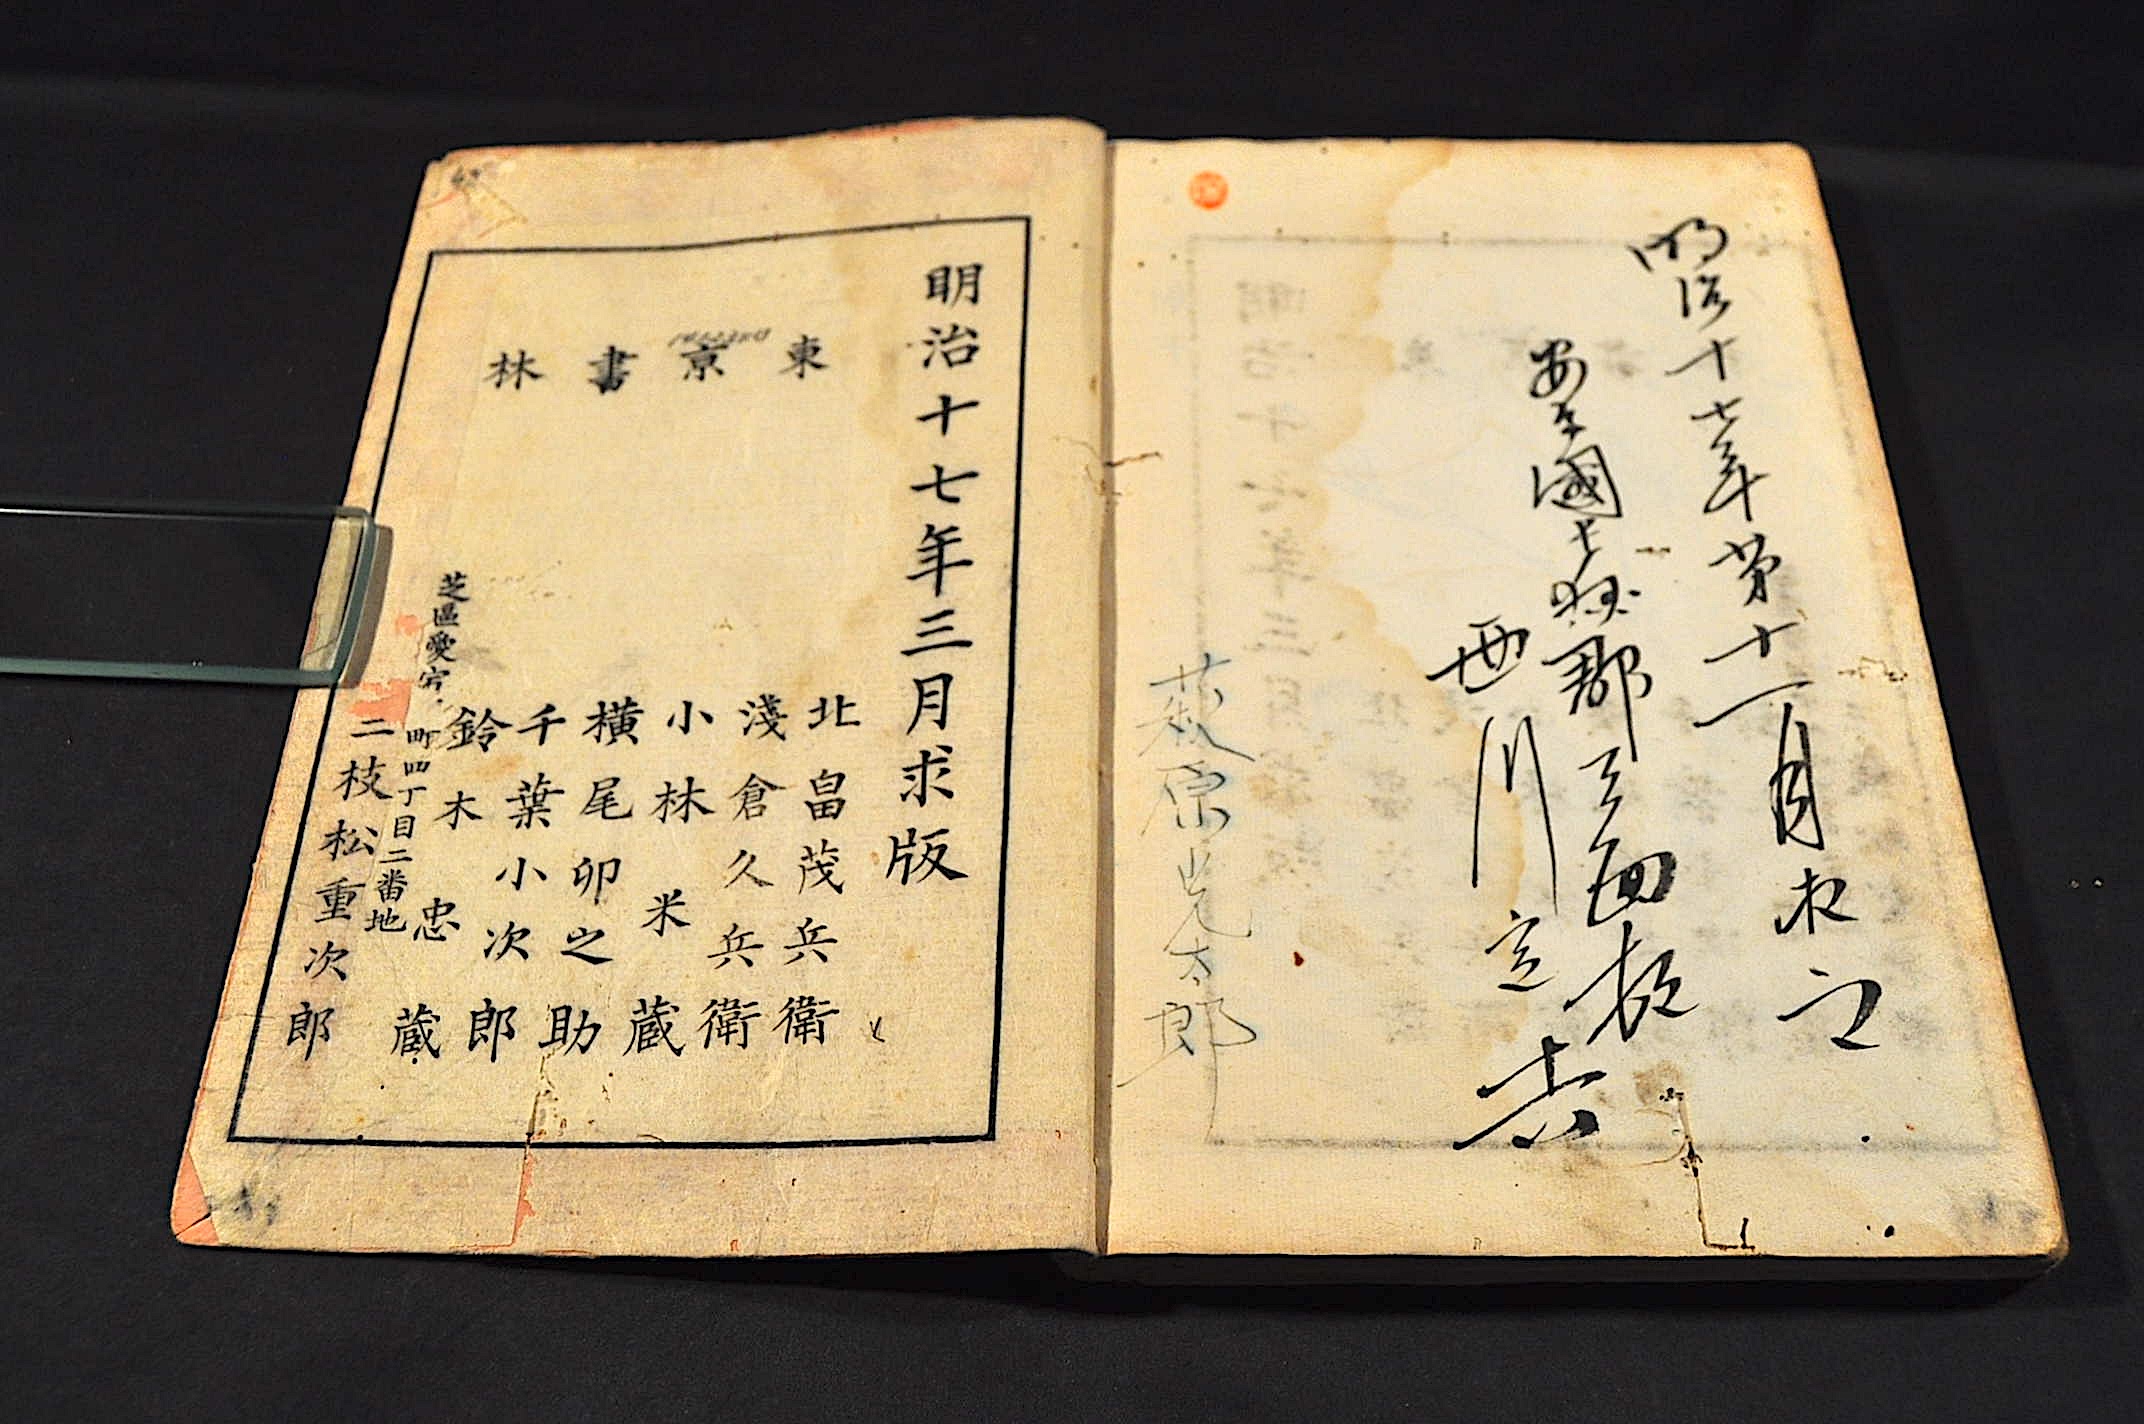 明治十七年第十一月求之
西川
萩原 太郎
明治十七年三月求版
東京書林
北畠茂兵衛
淺倉久兵衛
小林米蔵
横尾卯之助
千葉小次郎
鈴木忠蔵
芝區愛宕町四丁目二番地
二枝松重次郎